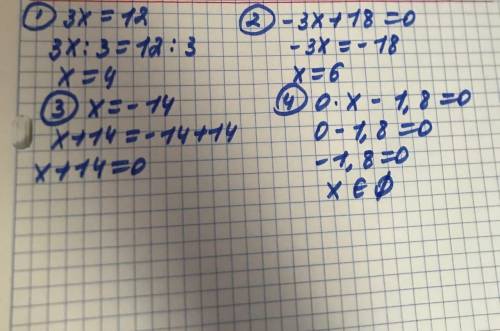 ① 3x = 12
3x : 3 = 12 : 3
x = 4
② -3x + 18 = 0
-3x = -18
x = 6
③ x = -14
x + 14 = -14 + 14
x + 14 = 0
④ 0 · x - 1,8 = 0
0 - 1,8 = 0
-1,8 = 0
x ∈ ∅